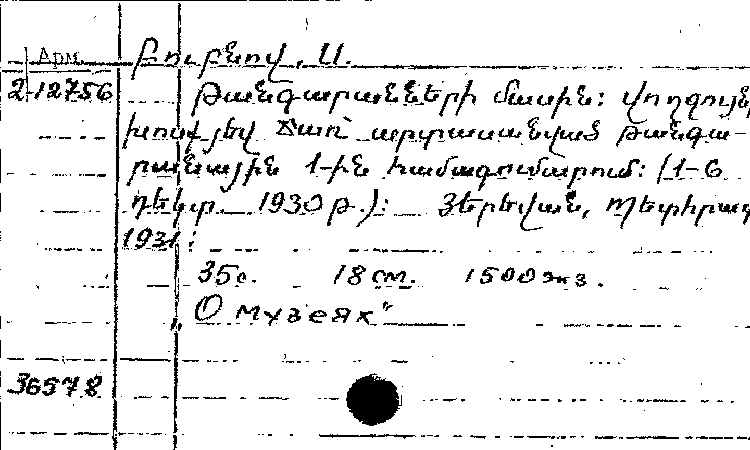 Арм. Բուբնով, Ա.
2-12756 Թանգարանների մասին: Վողջույնի
խոսք յեվ ճառ՝ արտասանված թանգա-
րանային 1-ին համագումարում: (1-6
դեկտ. 1930 թ.): Յերեվան, Պետհրատ
1931:
35с. 18 см. 1500 экз.
„О музеях"
36578